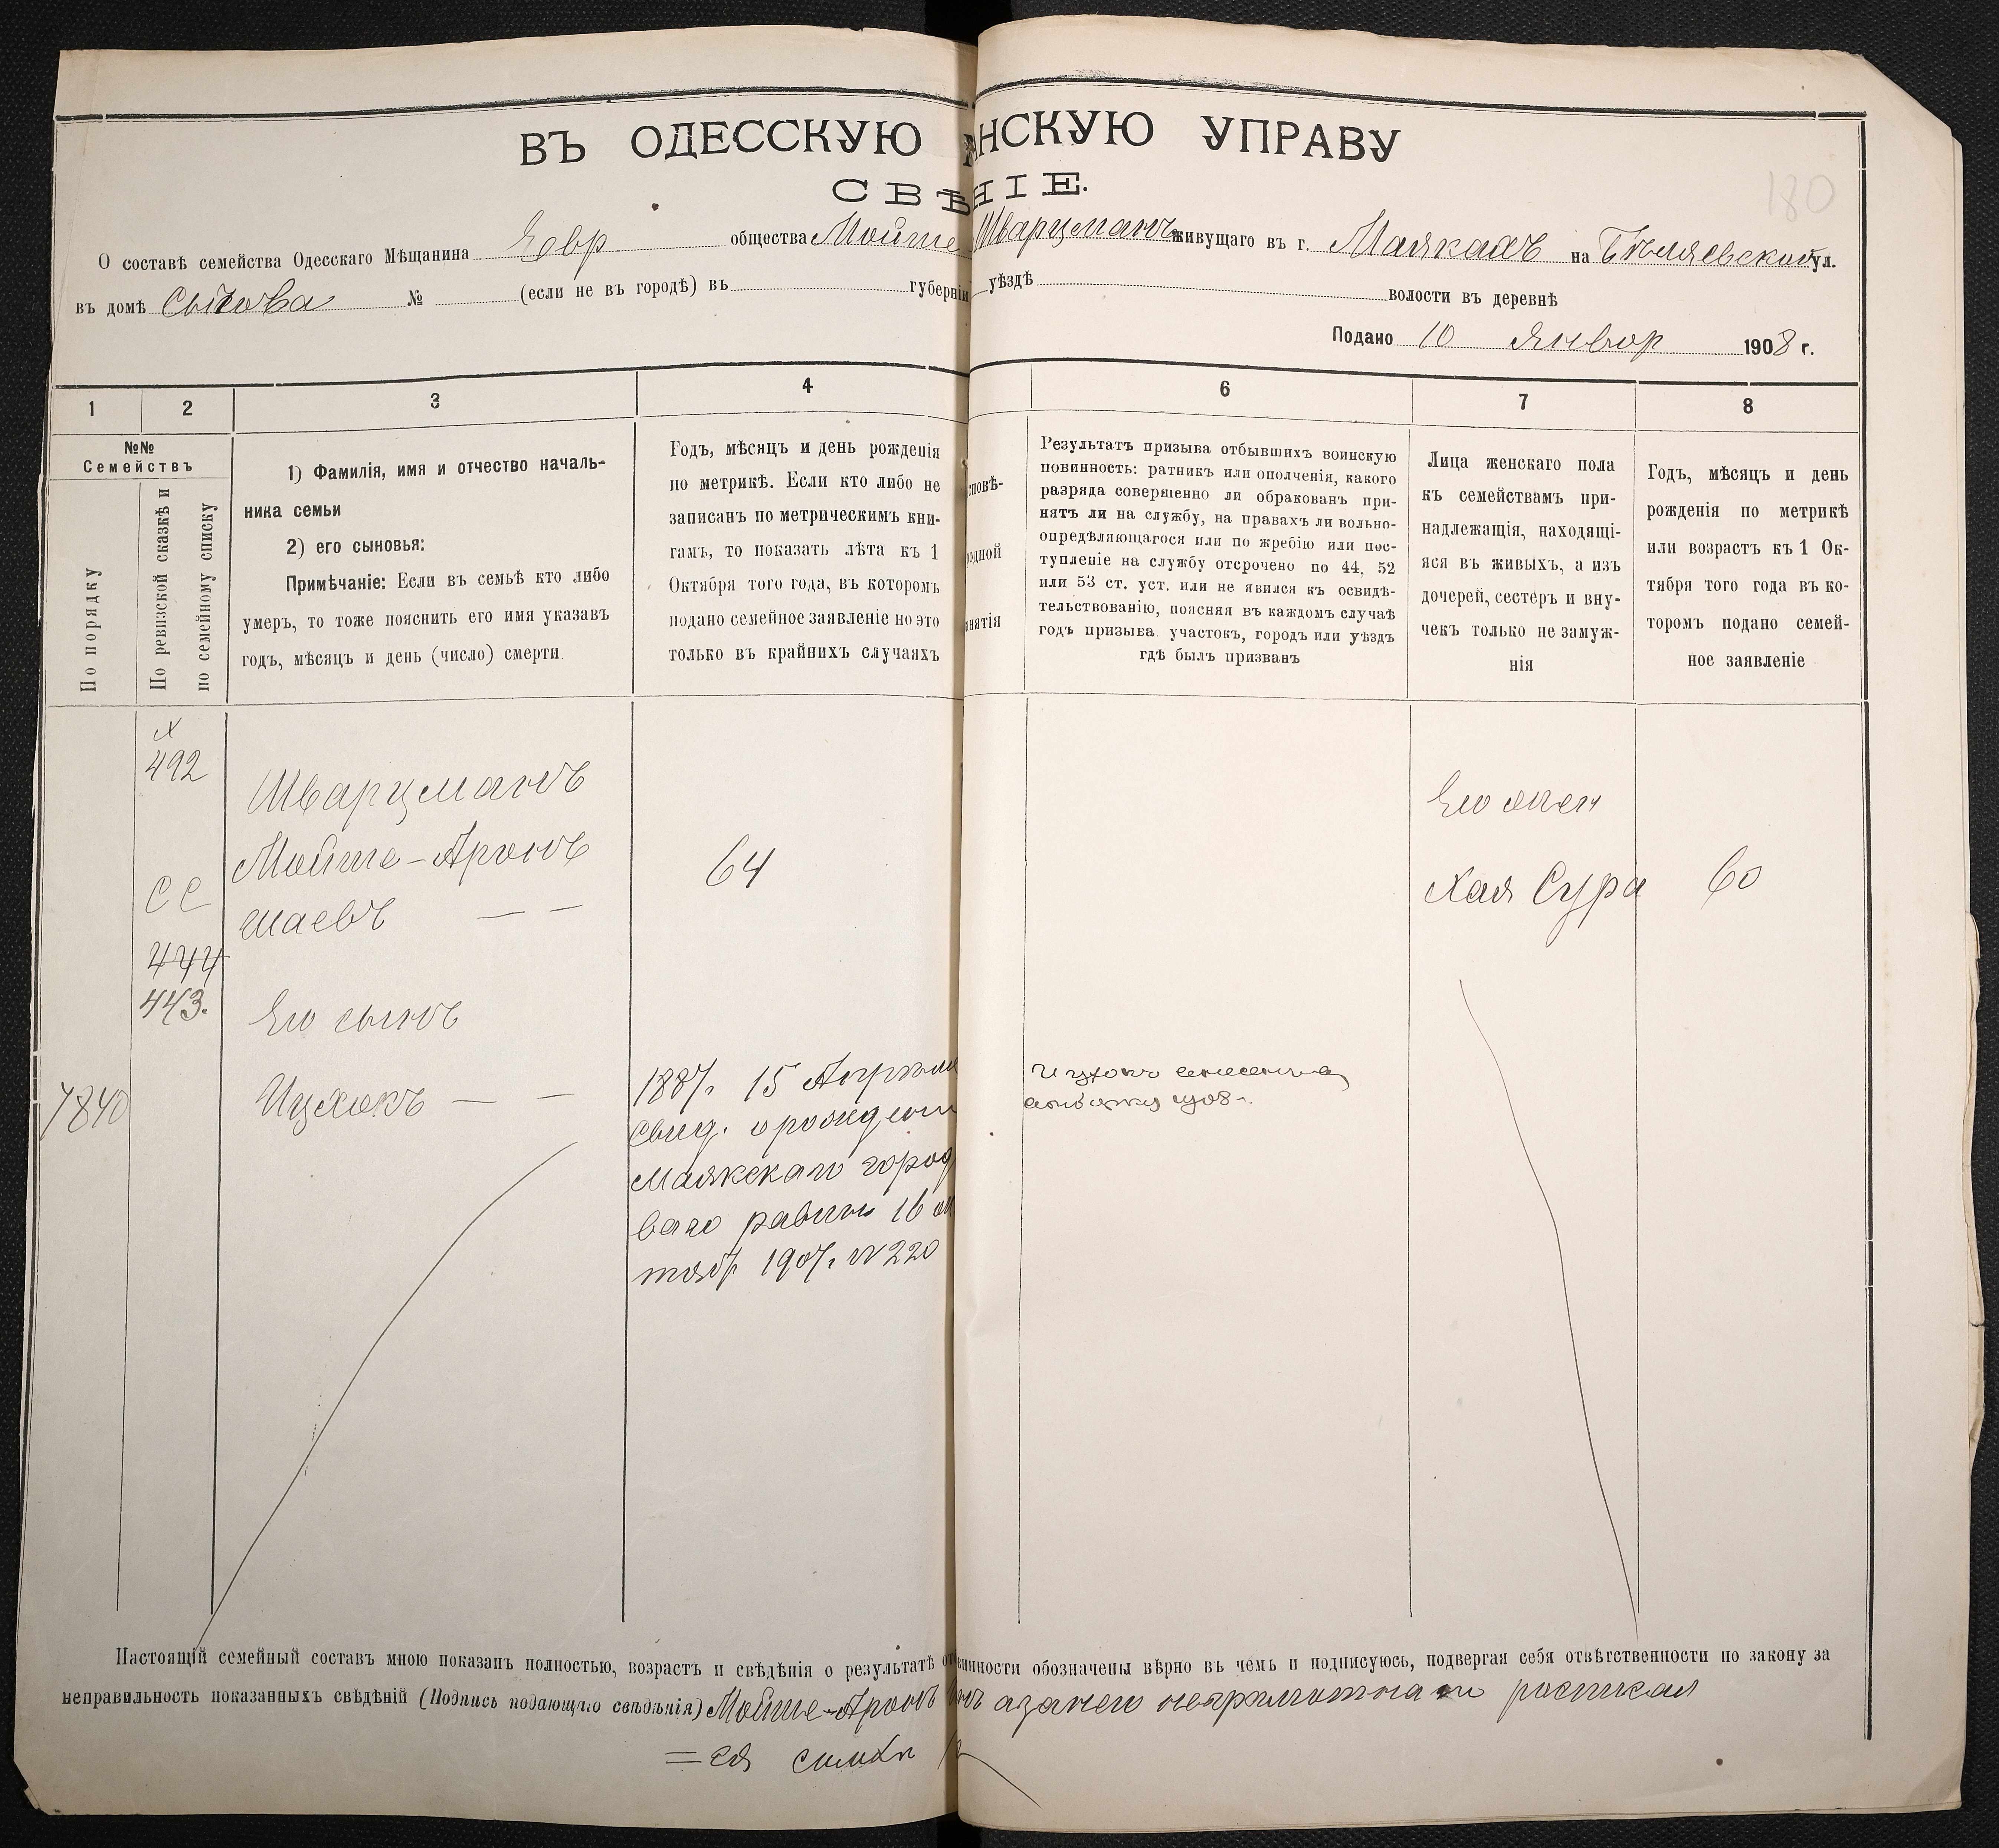 ВЪ ОДЕССКУЮ АНСКУЮ УПРАВУ
СВѢНІЕ.
180
О составѣ семейства Одесскаго Мѣщанина Евр общества Мойше Шварцманъ живущаго въ г. Маякахъ на Бѣляевской ул.
въ домѣ Сытова № (если не въ городѣ) въ губерніи уѣздѣ волости въ деревнѣ
Подано 10 Январ 1908 г.
1 2 3 4 6 7 8
№№
Семействъ
По порядку
По ревизской сказкѣ и
по семейному списку
1) Фамилія, имя и отчество началь-
ника семьи
2) его сыновья:
Примѣчаніе: Если въ семьѣ кто либо
умеръ, то тоже пояснить его имя указавъ
годъ, мѣсяцъ и день (число) смерти.
Годъ, мѣсяцъ и день рожденія
по метрикѣ. Если кто либо не
записанъ по метрическимъ кни-
гамъ, то показать лѣта къ 1
Октября того года, въ которомъ
подано семейное заявленіе но это
только въ крайнихъ случаяхъ
сповѣ-
родной
анятія
Результатъ призыва отбывшихъ воинскую
повинность: ратникъ или ополченія, какого
разряда совершенно ли обракованъ при-
нятъ ли на службу, на правахъ ли вольно-
опредѣляющагося или по жребію или пос-
тупленіе на службу отсрочено по 44, 52
или 53 ст. уст. или не явился къ освидѣ-
тельствованію, поясняя въ каждомъ случаѣ
годъ призыва. участокъ, городъ или уѣздъ
гдѣ былъ призванъ
Лица женскаго пола
къ семействамъ при-
надлежащія, находящі-
яся въ живыхъ, а изъ
дочерей, сестеръ и вну-
чекъ только не замуж-
нія
Годъ, мѣсяцъ и день
рожденія по метрикѣ
или возрастъ къ 1 Ок-
тября того года въ ко-
торомъ подано семей-
ное заявленіе
492
Шварцманъ
Мойше-Аронъ
шаевъ — —
64
СС
444
443.
Его жен
Хая Сура 60
Его сынъ
7840
Ицхокъ — —
1887г. 15 Апрѣля
Свид. о рожден
Маякскаго город
ваго равин 16 ок
тяб 1907г. № 220
Ицхокъ
1908 г.
Настоящій семейный составъ мною показанъ полностью, возрастъ и свѣдѣнія о результатѣ от винности обозначены вѣрно въ чемъ и подписуюсь, подвергая себя отвѣтственности по закону за
неправильность показанныхъ свѣдѣній (Подпись подающаго свѣдѣнія) Мойше-Аронъ